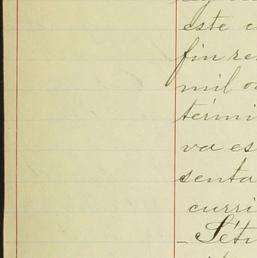 este
fin re
mil o
térmi
va es
senta
curri
- Séti